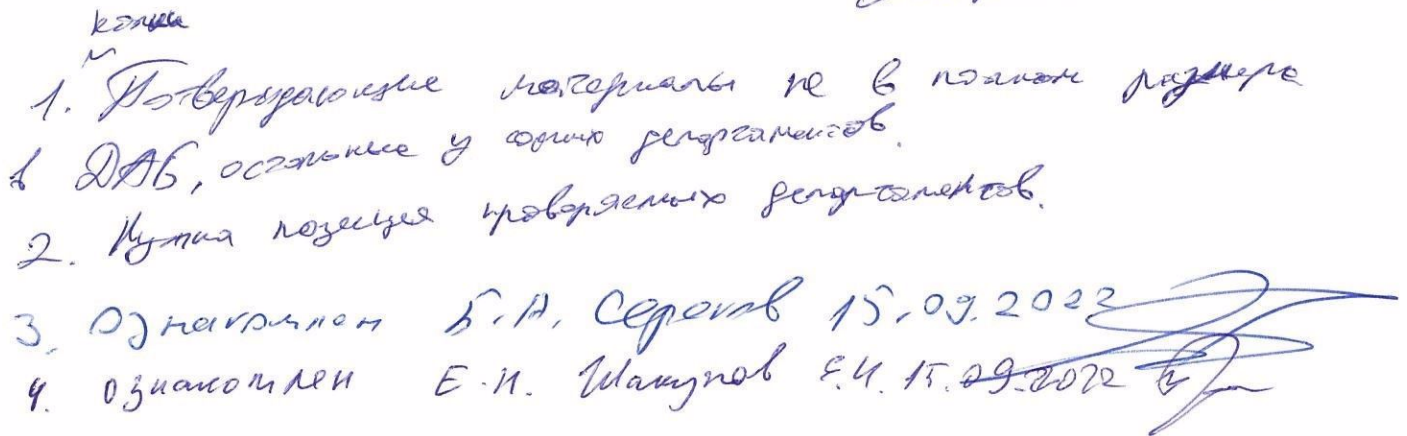 копии
1. Потверждающие материалы не в полном размере
в ДАБ, остальные у самих департаментов.
2. Нужна позиция проверяемых департаментов.
3. Ознакомлен Б.А. Сероков 15.09.2022
4. ознакомлен Е.И. Шакупов Е.И. 15.09.2022